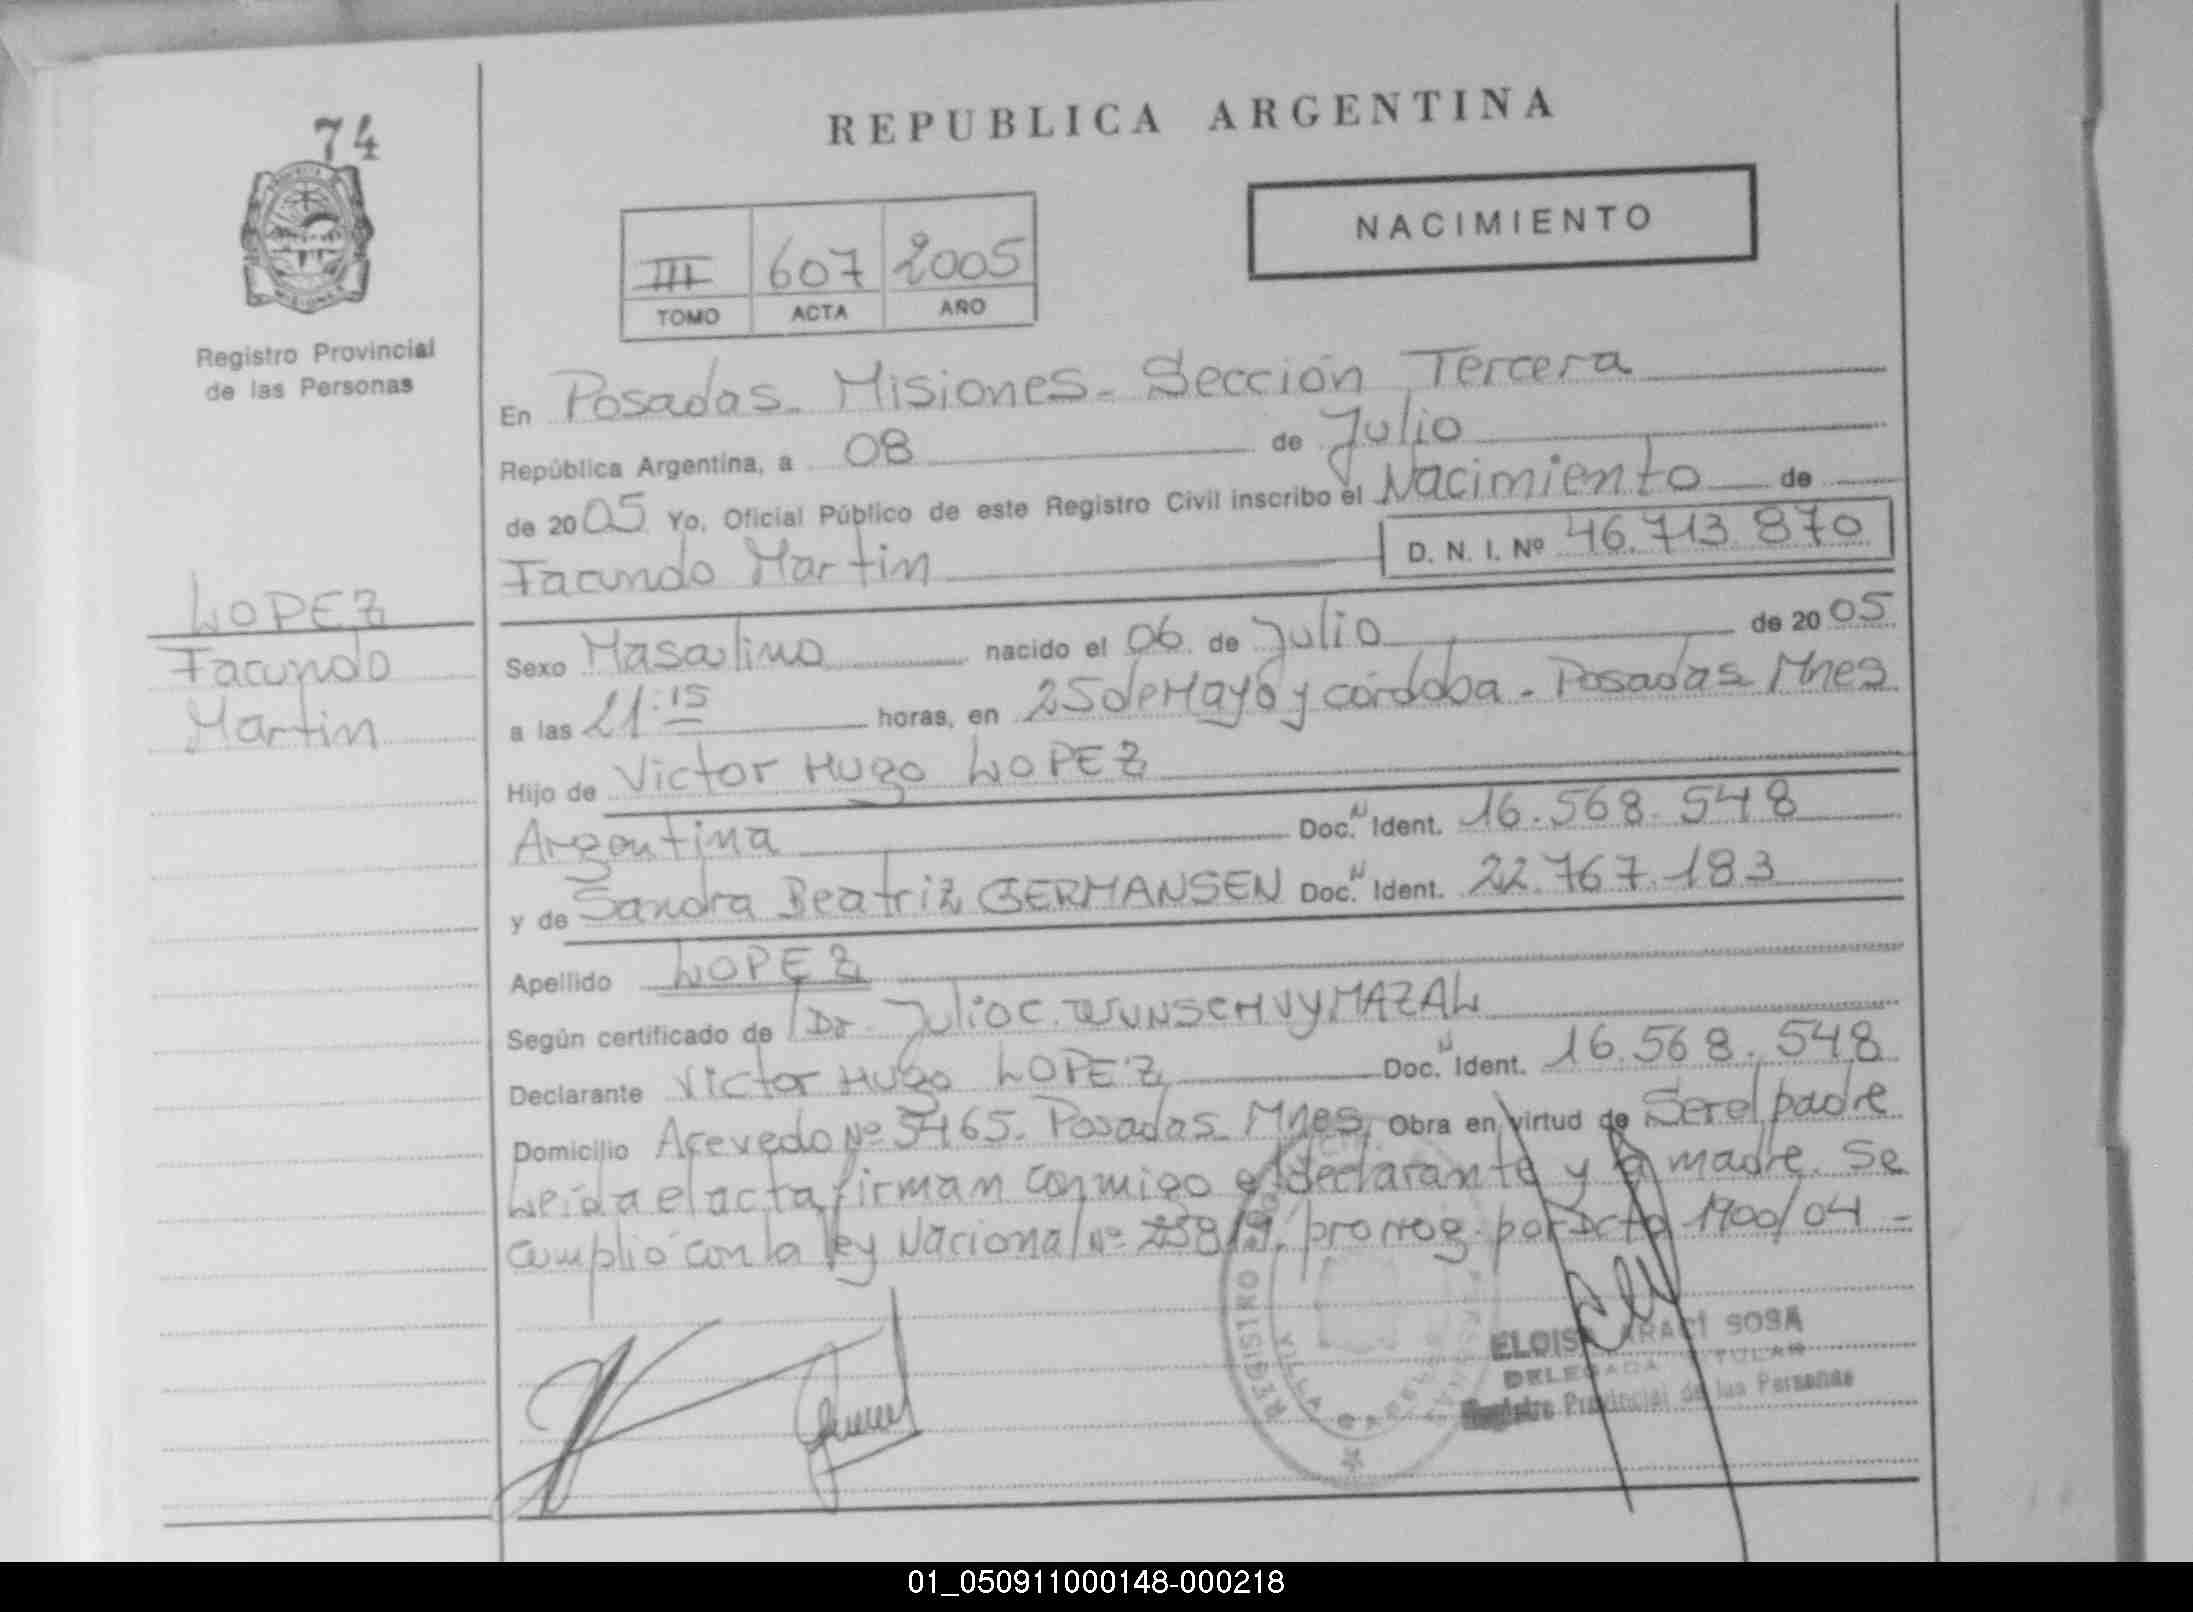 74
REPUBLICA ARGENTINA
NACIMIENTO
III 607 2005
TOMO ACTA AÑO
Registro Provincial
de las Personas
En Posadas - Misiones - Sección Tercera
República Argentina, a 08 de Julio
de 2005 Yo, Oficial Público de este Registro Civil inscribo el Nacimiento de
Facundo Martin D. N. I. Nº 46.713.870
LOPEZ
Facundo
Martin
Sexo Masculino nacido el 06 de Julio de 2005
a las 21:15 horas, en 25 de Mayo y Córdoba - Posadas Mnes
Hijo de Victor Hugo LOPEZ
Argentina Doc. N Ident. 16.568.548
y de Sandra Beatriz GERMANSEN Doc. N Ident. 22.767.183
Apellido LOPEZ
Según certificado de Dr. Julio C. WUNSCH UYMAZAL
Declarante Victor Hugo LOPEZ Doc. N Ident. 16.568.548
Domicilio Acevedo Nº 5465. Posadas - Mnes, Obra en virtud de Ser el padre
Leída el acta firman conmigo el declarante y la madre. Se
cumplió con la ley Nacional Nº 25819, prorrog. por Dcto 1900/04 -
REGISTRO VILLA
ELOISA ARACI SOSA
DELEGADA TITULAR
Registro Provincial de las Personas
01_050911000148-000218